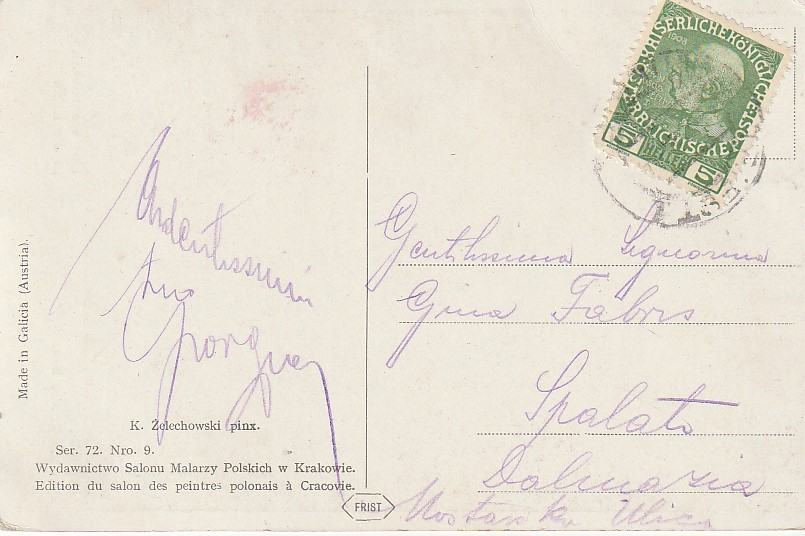 Made in Galicia (Austria).
Ardentissimi
tuo
K. Żelechowski pinx.
Ser. 72. Nro. 9.
Wydawnictwo Salonu Malarzy Polskich w Krakowie.
Edition du salon des peintres polonais à Cracovie.
FRIST
KAISERLICHE KÖNIGLICHE ÖSTERREICHISCHE POST
1908
5 HELLER 5
Gentilissima Signorina
Gina Fabris
Spalato
Dalmazia
Mostarska Ulica